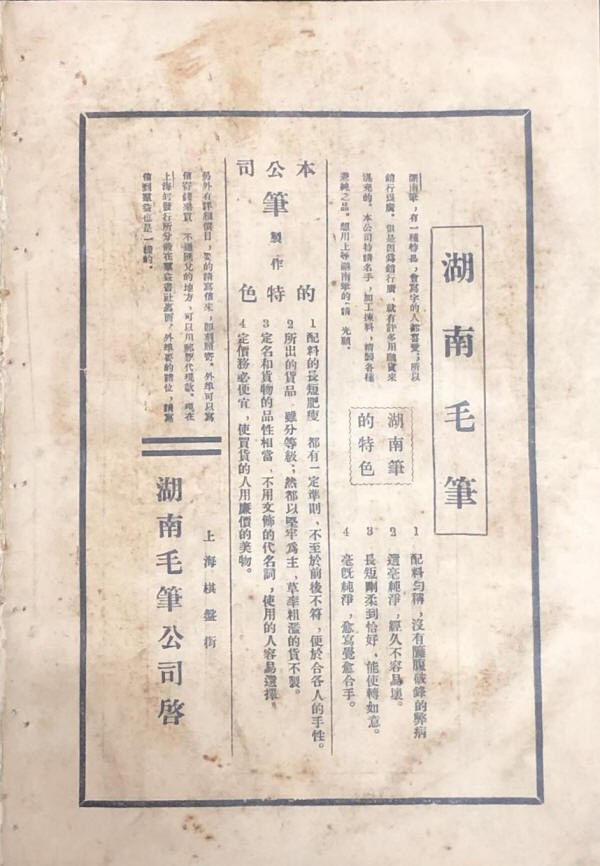 湖南毛筆
湖南筆，有一種特長，會寫字的人都喜愛；所以
銷行頗廣。但是因為銷行廣，就有許多用醜貨來
混充的。本公司特請名手，加工揀料，精製各種
業純之品。想用上等湖南筆的，請 光顧。
湖南筆
的特色
1 配料勻稱，沒有臃腫破鋒的弊病
2 選毫純淨，經久不容易壞。
3 長短剛柔到恰好，能使轉如意。
4 毫旣純淨，愈寫覺愈合手。
本公司
筆
製作
的特色
1 配料的長短肥瘦 都有一定準則，不至於前後不符，便於合各人的手性。
2 所出的貨品 雖分等級；然都以堅牢爲主，草率粗濫的貨不製。
3 定名和貨物的品性相當，不用文飾的代名詞；使用的人容易選擇。
4 定價務必便宜，使買貨的人用廉價的美物。
另外有詳細價目，要的請寫信來，卽刻順寄。外埠可以寫
信寄錢來買 不通匯兌的地方，可以用郵票代現款。現在
上海的發行所分設在羣益書社裏面，外埠要的諸位，請寫
信到羣益也是一樣的。
上海棋盤街
湖南毛筆公司啓